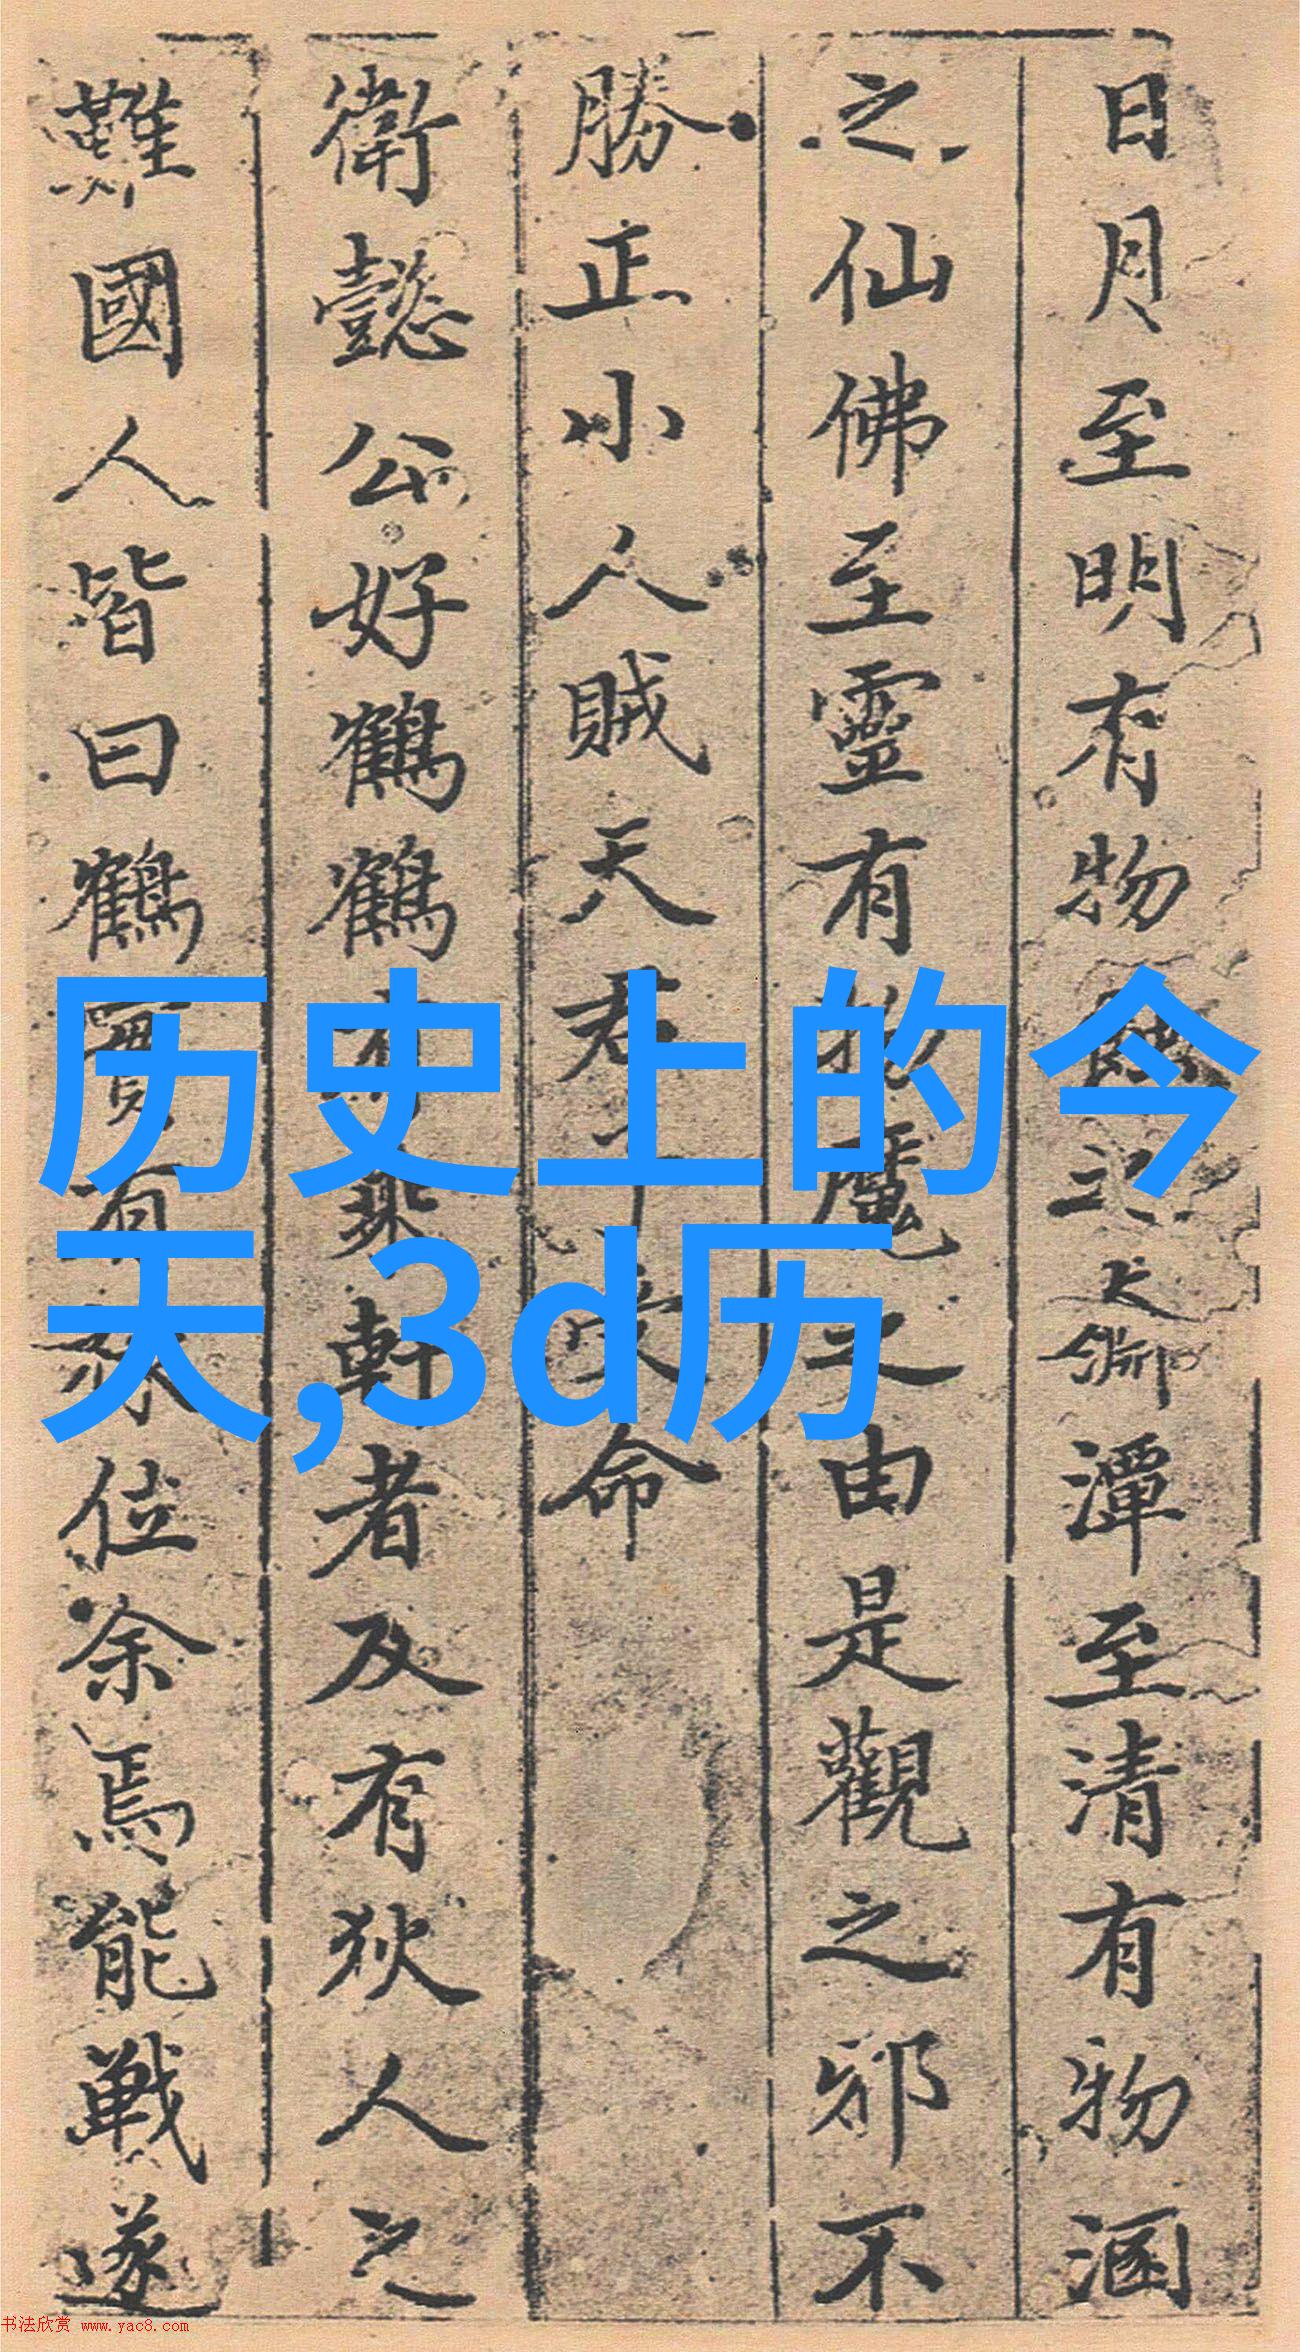 日月至明有物蝕之大淵潭至清有物涵
之仙佛至靈有物魔之由是觀之邪不
勝正小人賊天君命
衛懿公好鶴鶴有乘軒者及有狄人之
難國人皆曰鶴實有祿位余焉能戰遂
历史上的今
天,3d历
书法欣赏 www.yac8.com